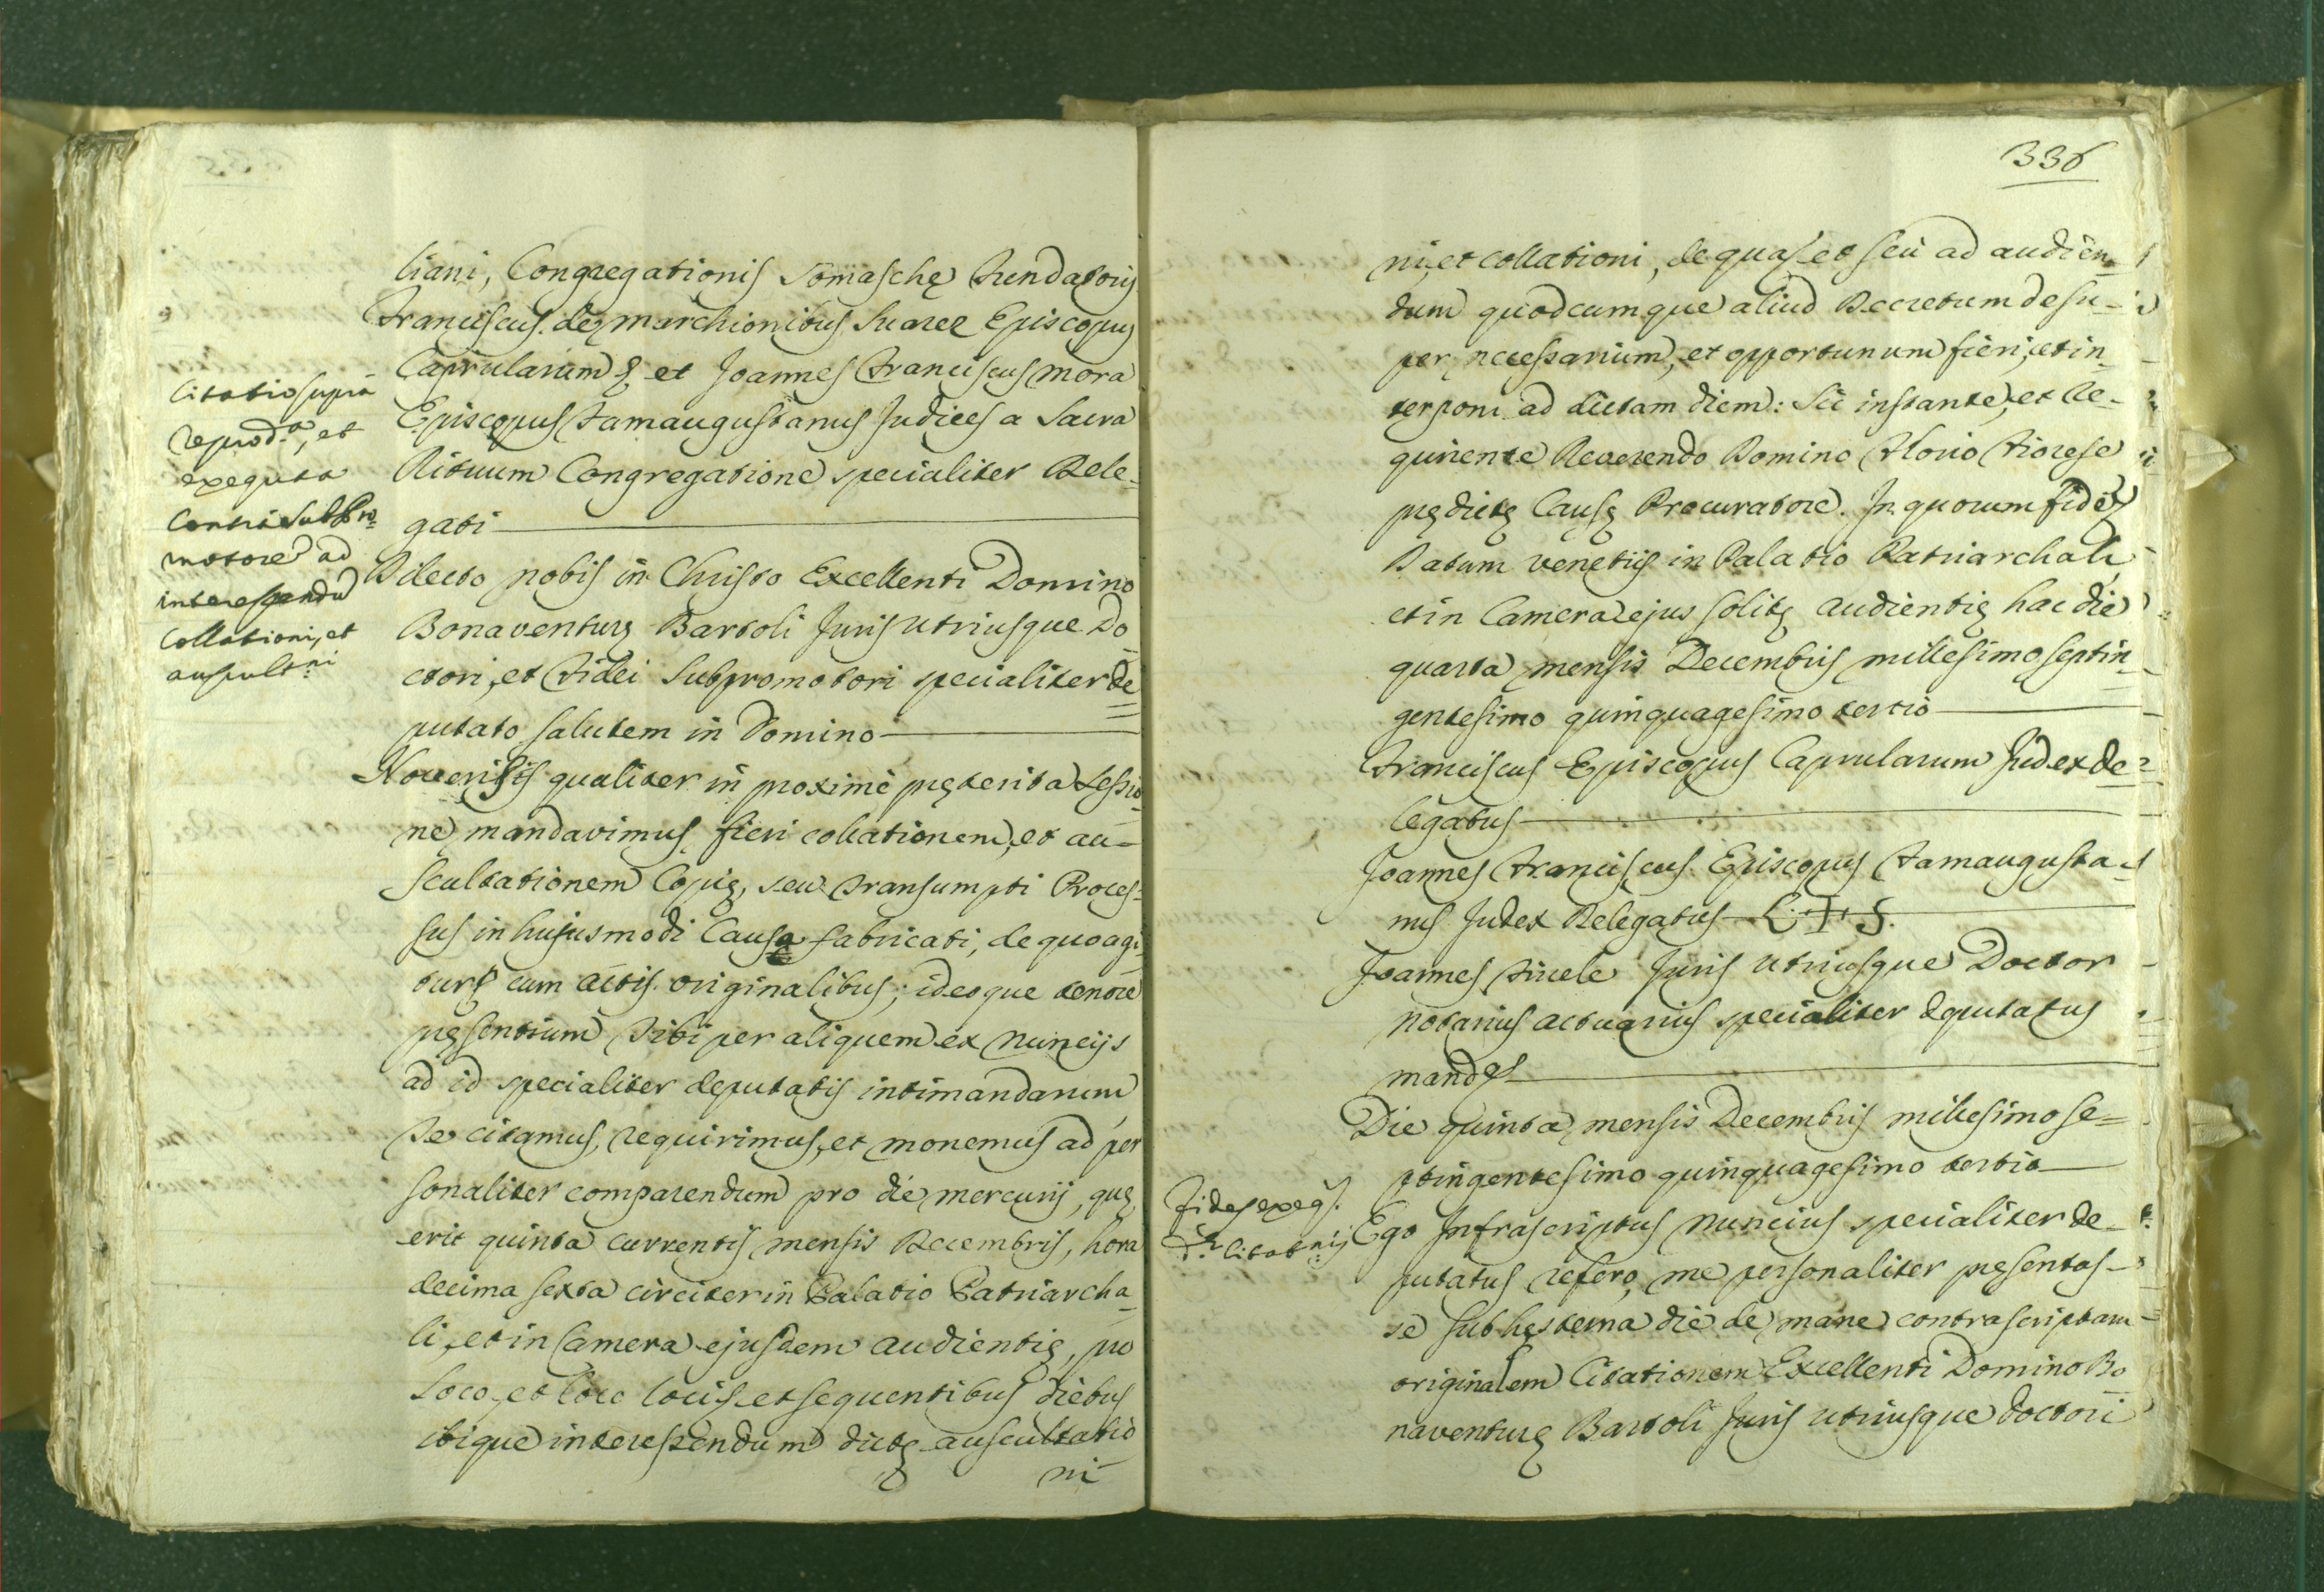 liani, Congregationis Somaschę Fundatoris
Franciscus de Marchionibus Suarez Episcopus
Caprularum & et Joannes Franciscus Mora
Episcopus Famaugustanus Judices a Sacra
Rituum Congregatione specialiter Dele-
gati
Citatio supra
reprod.ᵃ, et
exequta
Contra Subpro-
motore ad
interessendũ
Collationi, et
auscult.ni
Dilecto nobis in Christo Excellenti Domino
Bonaventurę Bartoli Juris Utriusque Do
ctori, et Fidei Subpromotori specialiter de
putato salutem in Domino
Noveritis qualiter in proximè pręterita Sessio-
ne mandavimus fieri collationem, et au-
scultationem Copię, seu transumpti Proces-
sus in hujusmodi Causa fabricati, de quo agi-
tur & cum actis originalibus; ideoque tenore
pręsentium Tibi per aliquem ex Nuncijs
ad id specialiter deputatis intimandarum
Te citamus, requirimus, et monemus ad per
sonaliter comparendum pro die mercurij, quę
erit quinta currentis mensis Decembris, hora
decima sexta circiter in Palatio Patriarcha-
li, et in Camera ejusdem audientię, pro
loco, et loco locis et sequentibus diebus
ibique interessendum dictę auscultatio
ni
336
ni, et collationi, de quas et seù ad audien-
dum quodcumque aliud Decretum desu-
per necessarium, et opportunum fieri, et in-
terponi ad dictam diem: Sic instante, et Re-
quirente Reverendo Domino Florio Fiorese
prędictę Causę Procuratore. In quorum fidẽ &
Datum Venetijs in Palatio Patriarchali
et in Camera ejus solitę audientię hac die
quarta mensis Decembris millesimo septin-
gentesimo quinquagesimo tertio
Franciscus Episcopus Caprularum Judex de-
legatus
Joannes Franciscus Episcopus Famaugusta-
nus Judex Delegatus L. + S.
Joannes Juris Utriusque Doctor
Notarius actuarius specialiter deputatus
mand &
Die quinta mensis Decembris millesimo se-
ptingentesimo quinquagesimo tertio
Fides exeq.
d.ᵃ citat.nis
Ego Infrascriptus Nuncius specialiter de-
putatus refero, me personaliter pręsentas-
se sub hęsterna die de mane contrascriptam
originalem Citationem Excellenti Domino Bo
naventurę Bartoli Juris Utriusque Doctori